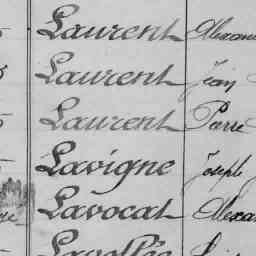 Laurent Alexan
Laurent Jean
Laurent Pierre
Lavigne Joseph
Lavocat Alexan
Lavollée